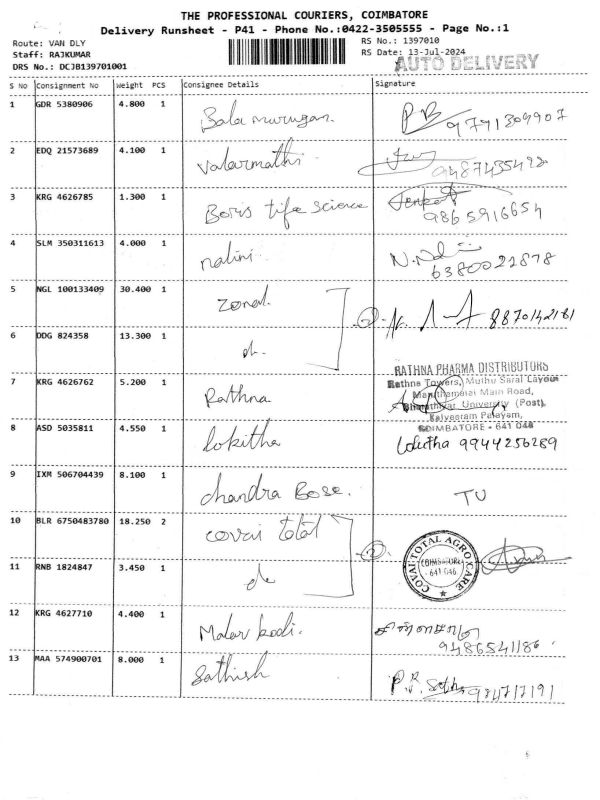 THE PROFESSIONAL COURIERS, COIMBATORE
Delivery Runsheet - P41 - Phone No.:0422-3505555 - Page No.:1
Route: VAN DLY
RS No.: 1397010
Staff: RAJKUMAR
RS Date: 13-Jul-2024
AUTO DELIVERY
DRS No.: DCJB139701001
S No Consignment No Weight PCS Consignee Details Signature
1 GDR 5380906 4.800 1 Bala murugan. PB 9791309907
2 EDQ 21573689 4.100 1 Valarmathi 9487435492
3 KRG 4626785 1.300 1 Boris life science 9865916654
4 SLM 350311613 4.000 1 nalini N.Nalini 6380022878
5 NGL 100133409 30.400 1 Zonal. 8870142161
6 DDG 824358 13.300 1 do.
RATHNA PHARMA DISTRIBUTORS
Rathna Towers, Muthu Saral Layout
Maruthamalai Main Road,
Bharathiyar University (Post),
Kalveeram Palayam,
COIMBATORE - 641 046
7 KRG 4626762 5.200 1 Rathna
8 ASD 5035811 4.550 1 lokitha Lokitha 9944256289
9 IXM 506704439 8.100 1 chandra Bose. TU
10 BLR 6750483780 18.250 2 covai total
COVAI TOTAL AGRO CARE
COIMBATORE
641 046
11 RNB 1824847 3.450 1 do
12 KRG 4627710 4.400 1 Malar kodi. 9486541186
13 MAA 574900701 8.000 1 Sathish P.R. 984717191